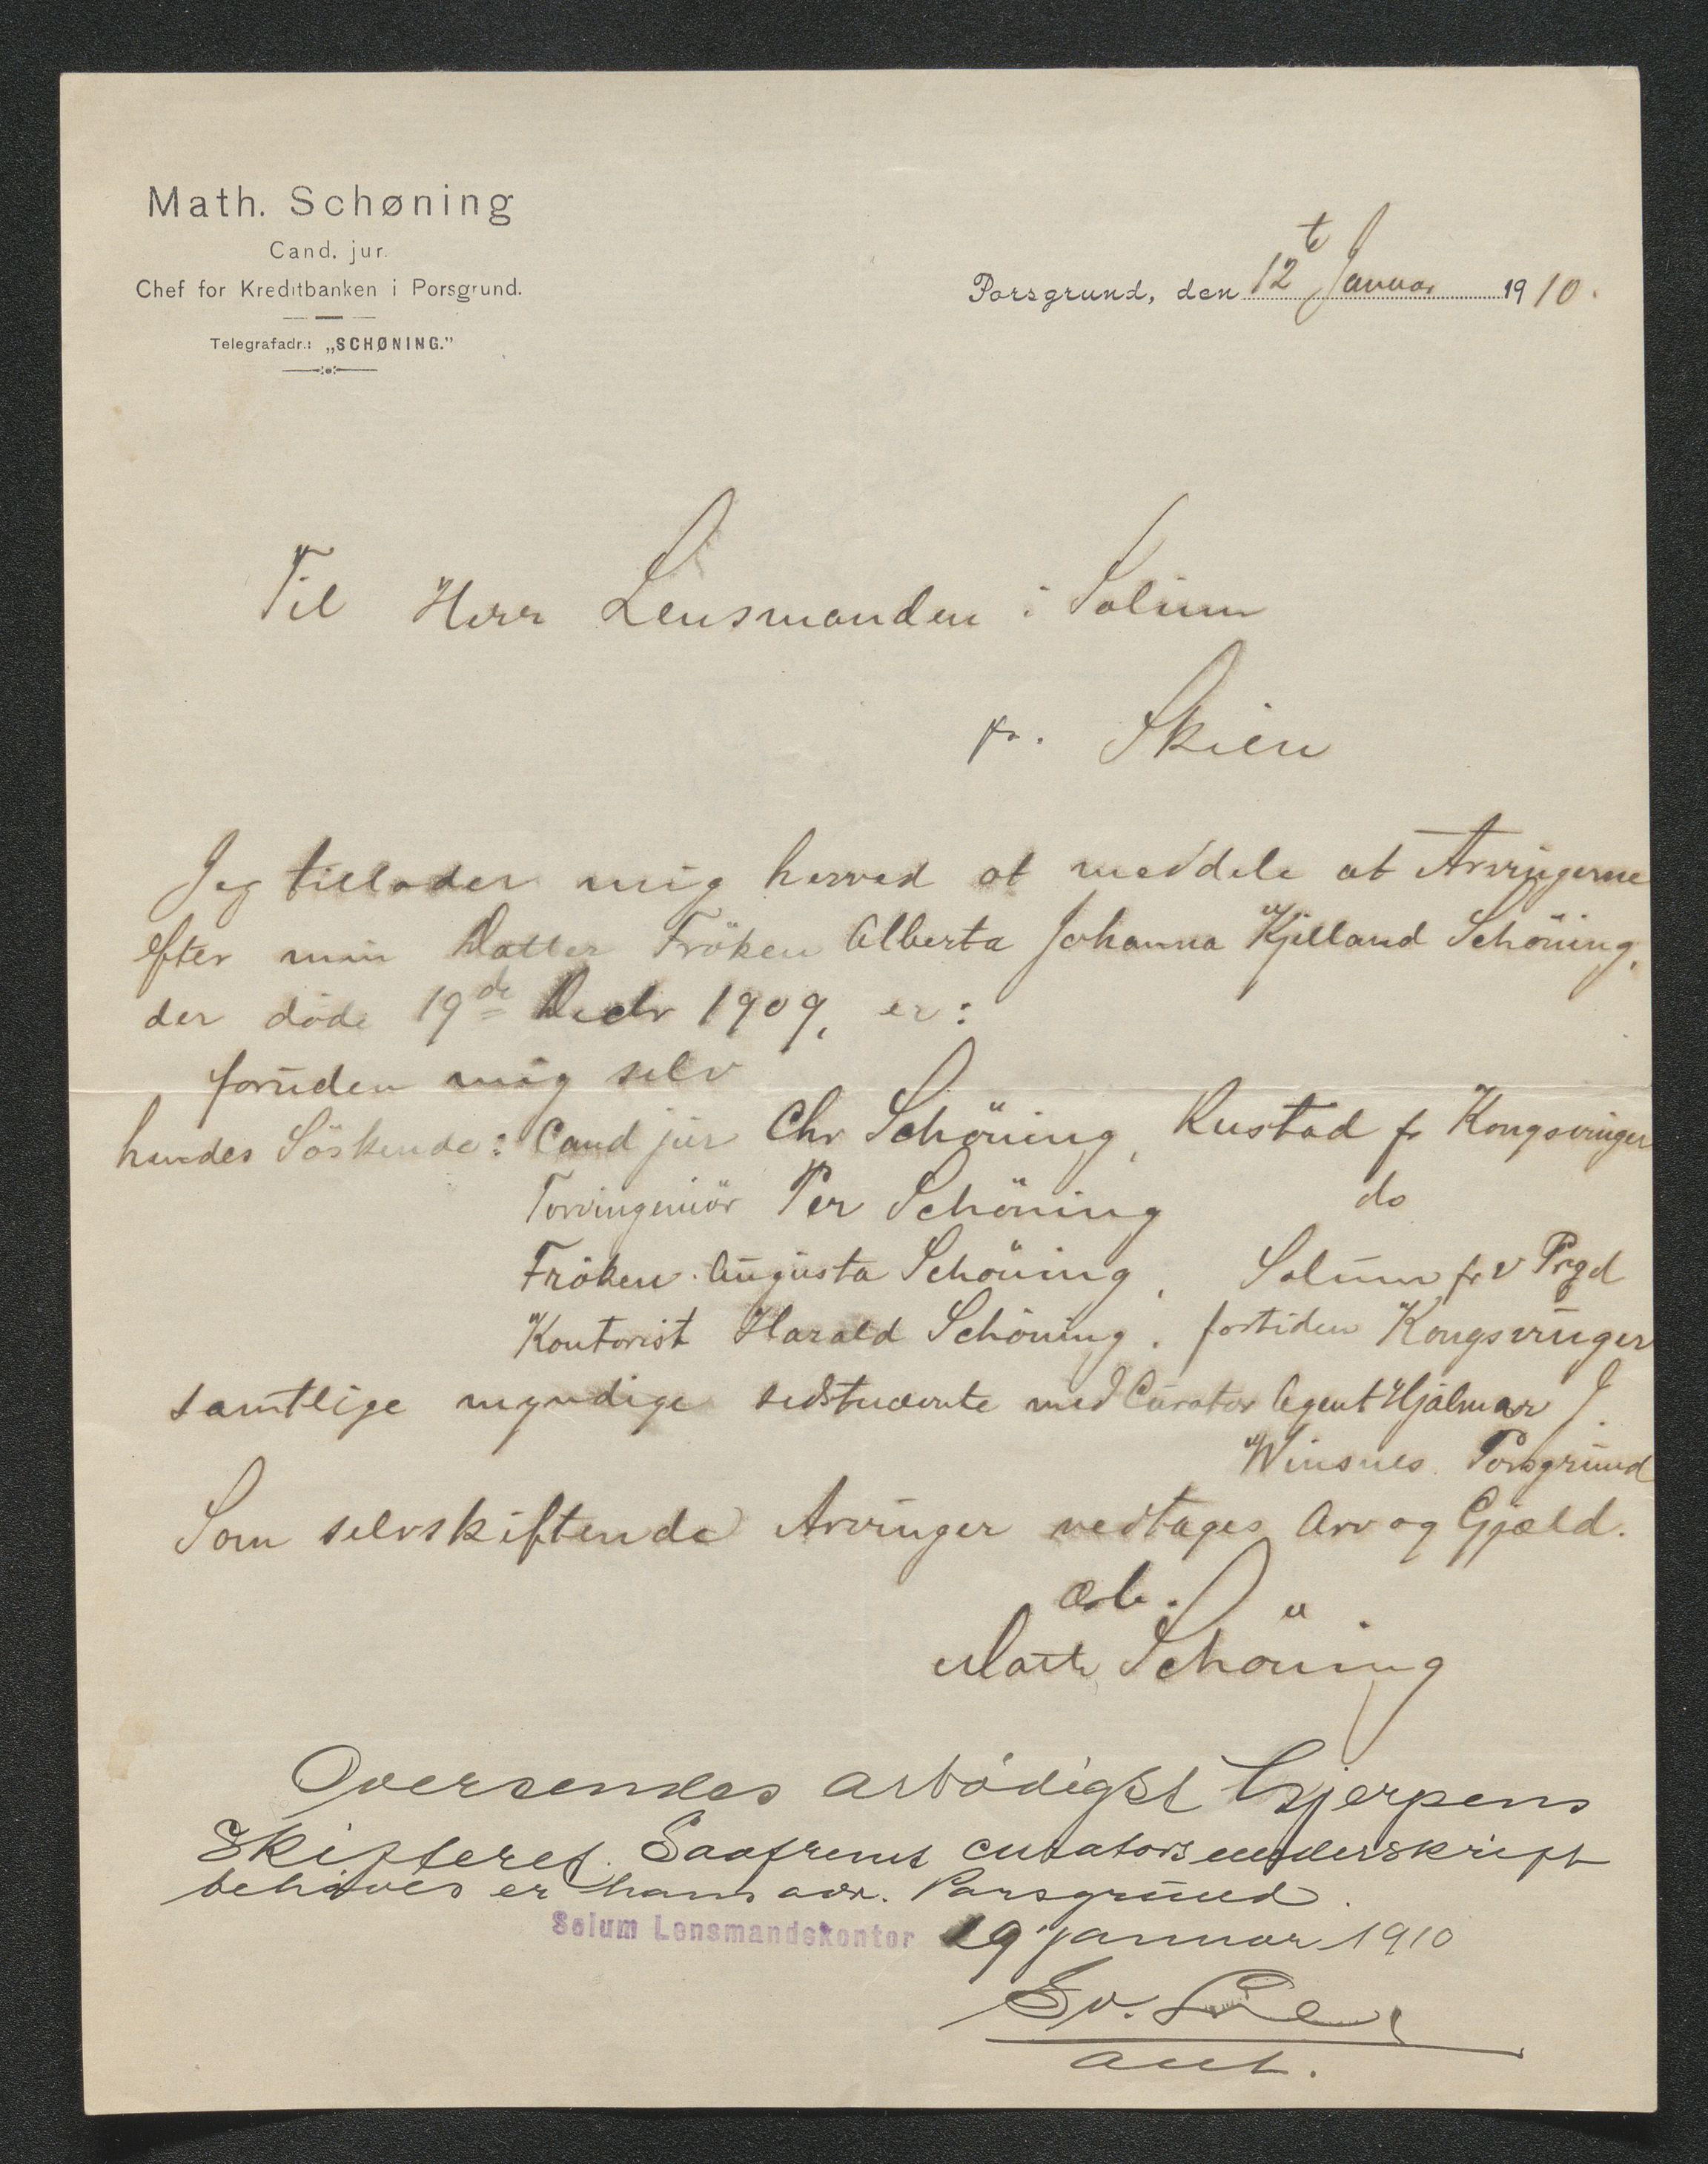 Math. Schøning
Cand. jur.
Chef for Kreditbanken i Porsgrund.
Telegrafadr.: „SCHØNING."
Porsgrund, den 12te Januar 1910.
Til Herr Lensmanden i Solum
pr. Skien
Jeg tillader mig herved at meddele at Arvingerne
efter min Datter Fröken Alberta Johanna Kjelland Schöning,
der döde 19de Decbr 1909, er:
foruden mig selv
hendes Söskende: Cand jur Chr Schöning, Rustad pr Kongsvinger
Torvingeniör Per Schöning do
Fröken Augusta Schöning, Solum pr V Prgd
Kontorist Harald Schöning, fortiden Kongsvinger
samtlige myndige sidstnævnte med Curator Agent Hjalmar J.
Winsnes Porsgrund
Som selvskiftende Arvinger vedtages Arv og Gjæld.
ærb.
Math Schöning
Oversendes ærbödigst Gjerpens
Skifteret. Saafremt curators underskrift
behöves er hans adr. Porsgrund.
Solum Lensmandskontor 19 januar 1910
Ev.
aut.